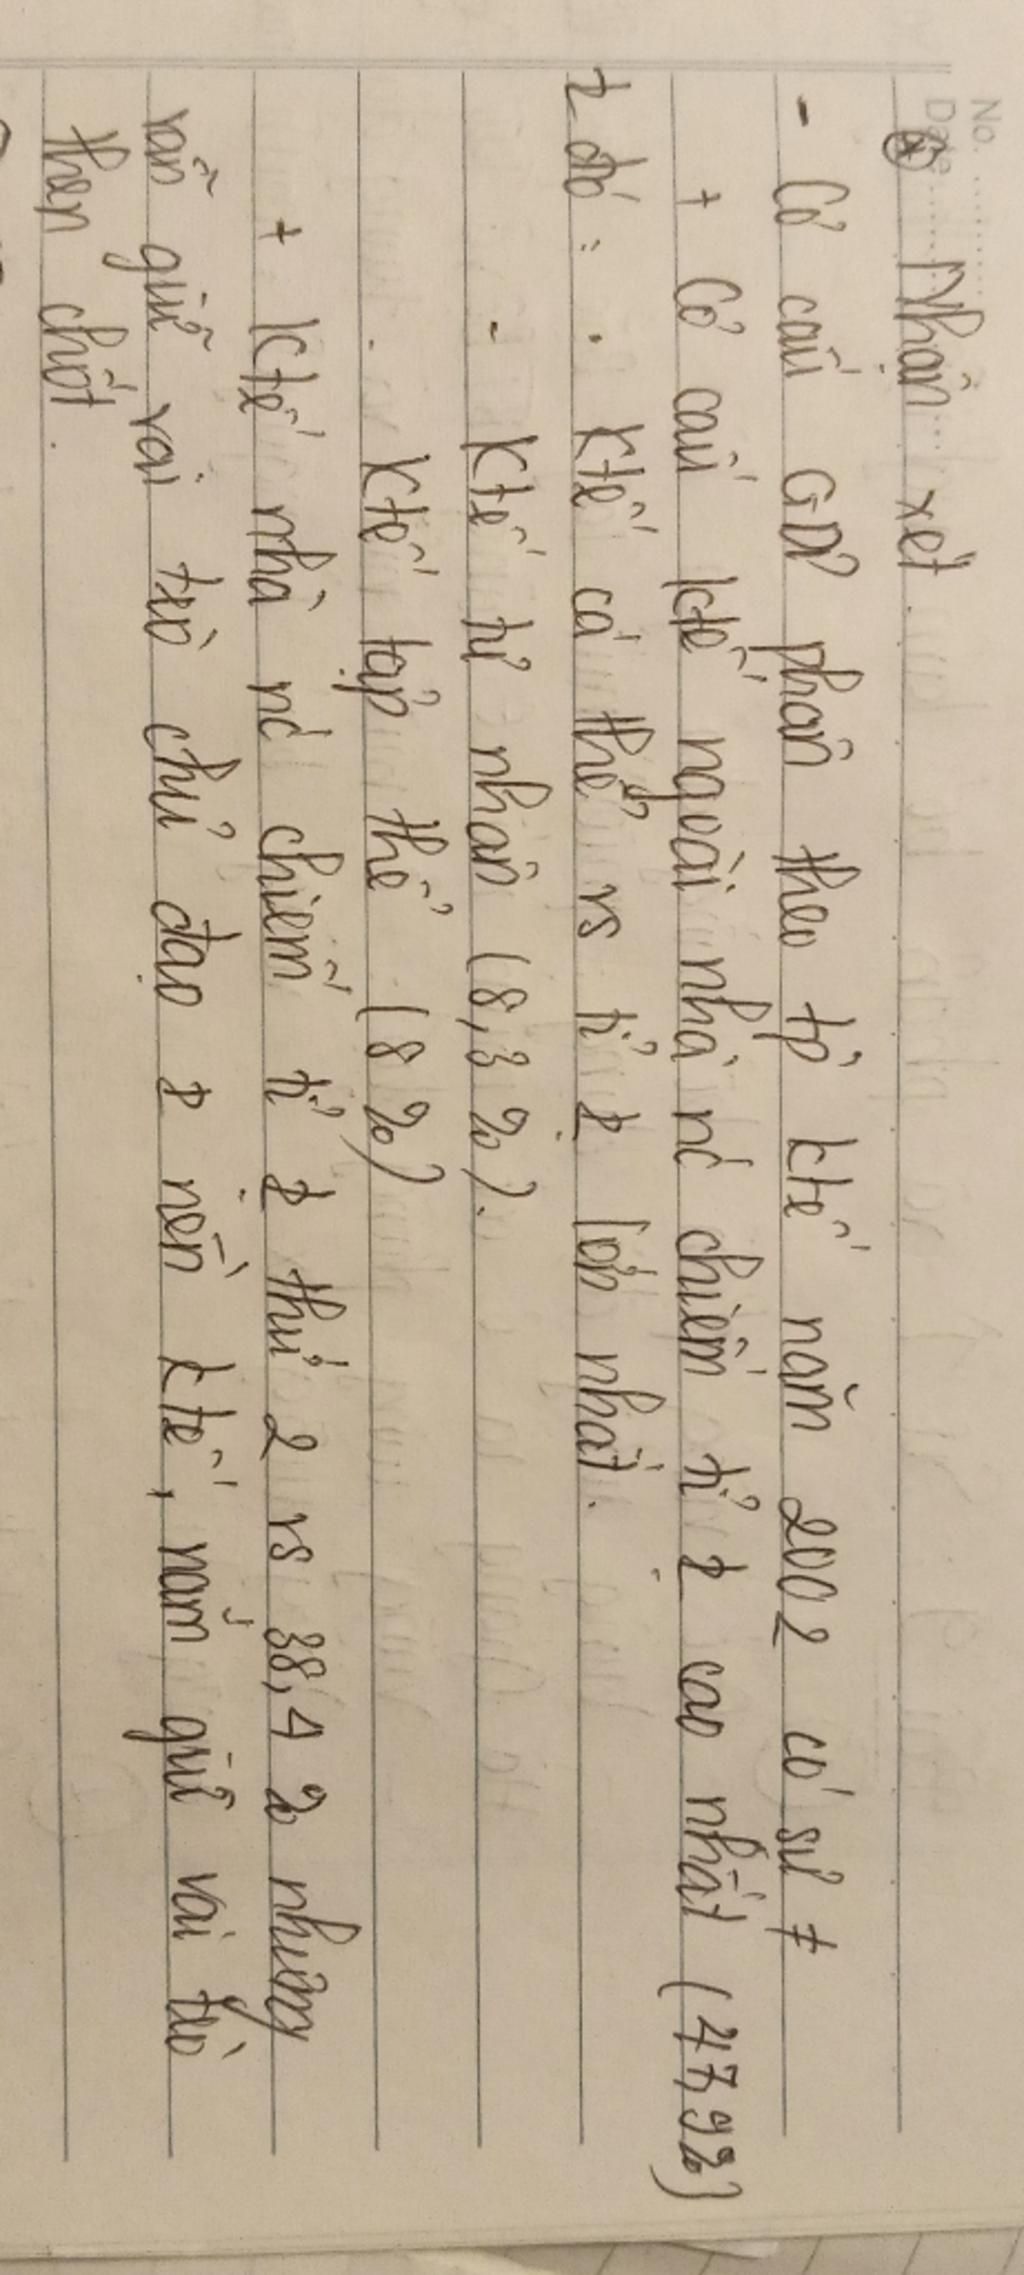 No.
Date
⊛ Nhận xét.
- Cơ cấu GDP phân theo tp ktế năm 2002 có sự ≠
+ Cơ cấu ktế ngoài nhà nc chiếm tỉ cao nhất (47,9%)
đó : . ktế cá thể vs tỉ lớn nhất.
- Ktế tư nhân (8,3%).
. Ktế tập thể (8%)
+ Ktế nhà nc chiếm tỉ thứ 2 vs 38,4% nhưng
vẫn giữ vai trò chủ đạo nền ktế, nắm giữ vai trò
then chốt.